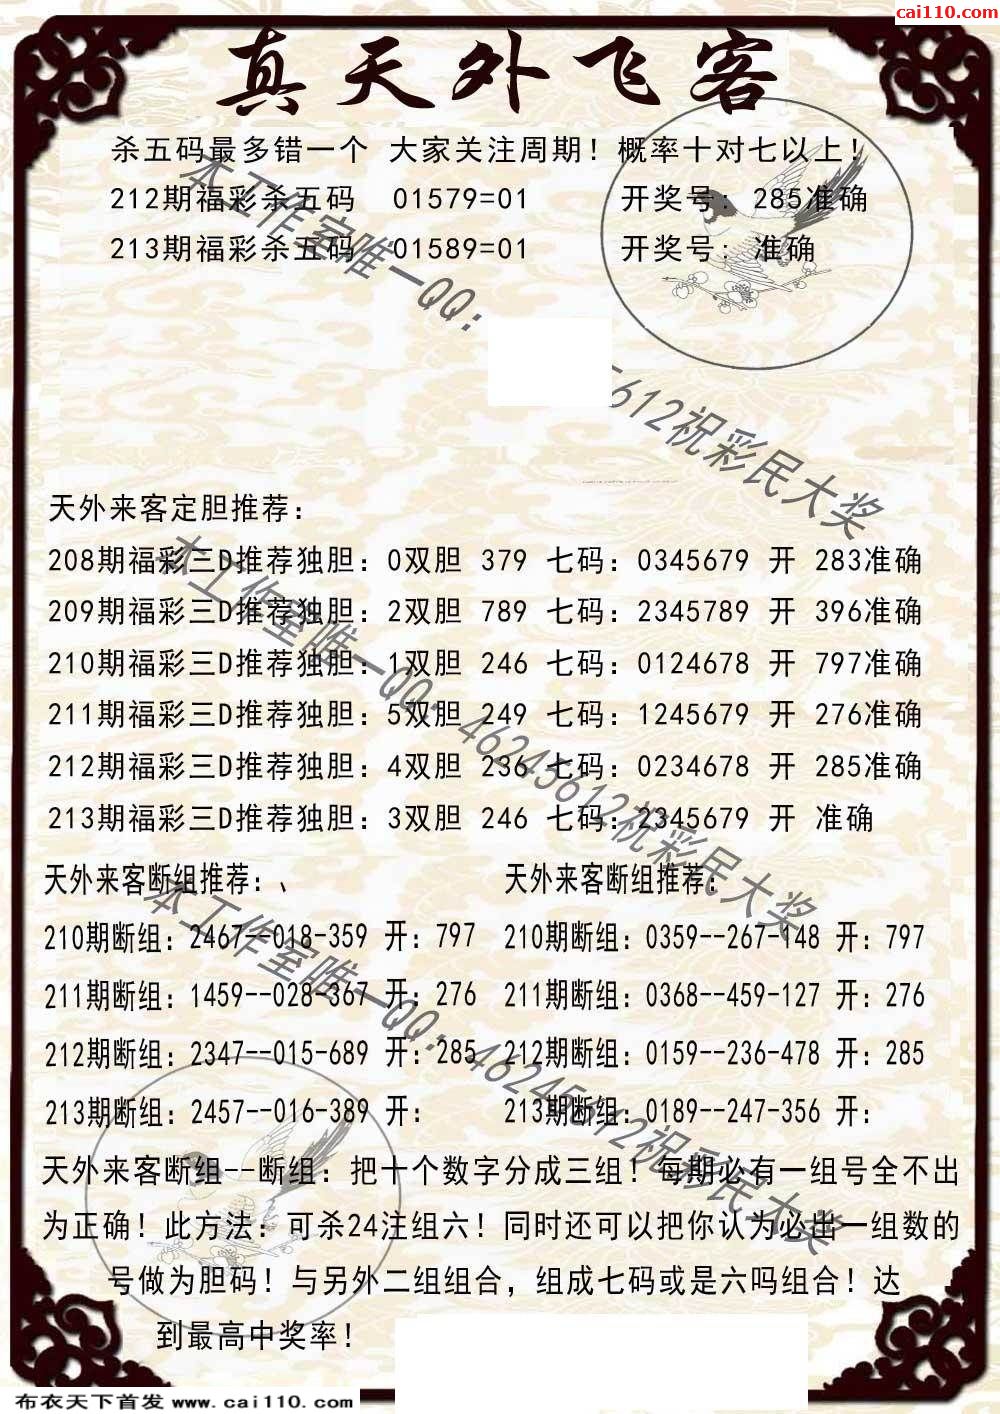 cai110.com
真天外飞客
杀五码最多错一个 大家关注周期！概率十对七以上！
212期福彩杀五码 01579=01 开奖号：285准确
213期福彩杀五码 01589=01 开奖号：准确
本工作室唯一QQ：
5612祝彩民大奖
天外来客定胆推荐：
208期福彩三D推荐独胆：0双胆 379 七码：0345679 开 283准确
209期福彩三D推荐独胆：2双胆 789 七码：2345789 开 396准确
210期福彩三D推荐独胆：1双胆 246 七码：0124678 开 797准确
211期福彩三D推荐独胆：5双胆 249 七码：1245679 开 276准确
212期福彩三D推荐独胆：4双胆 236 七码：0234678 开 285准确
213期福彩三D推荐独胆：3双胆 246 七码：2345679 开 准确
本工作室唯一QQ：46245612祝彩民大奖
天外来客断组推荐：、 天外来客断组推荐：
210期断组：2467--018-359 开：797 210期断组：0359--267-148 开：797
211期断组：1459--028-367 开：276 211期断组：0368--459-127 开：276
212期断组：2347--015-689 开：285 212期断组：0159--236-478 开：285
213期断组：2457--016-389 开： 213期断组：0189--247-356 开：
本工作室唯一QQ：46245612祝彩民大奖
天外来客断组--断组：把十个数字分成三组！每期必有一组号全不出
为正确！此方法：可杀24注组六！同时还可以把你认为必出一组数的
号做为胆码！与另外二组组合，组成七码或是六吗组合！达
到最高中奖率！
布衣天下首发 www.cai110.com